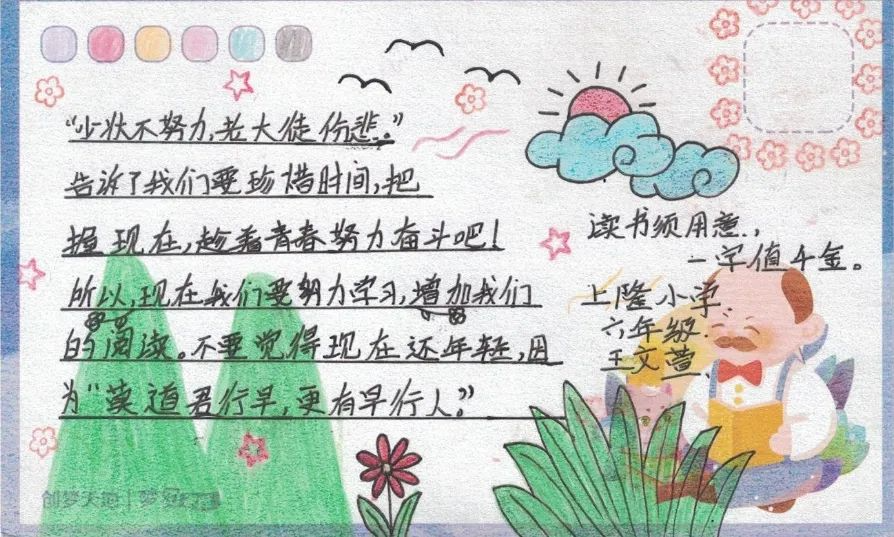 “少壮不努力,老大徒伤悲。”
告诉了我们要珍惜时间,把
握现在,趁着青春努力奋斗吧!
所以,现在我们要努力学习,增加我们
的阅读。不要觉得现在还年轻,因
为“莫道君行早,更有早行人。”
读书须用意,
一字值千金。
上隆小学
六年级
王文萱
创梦天地